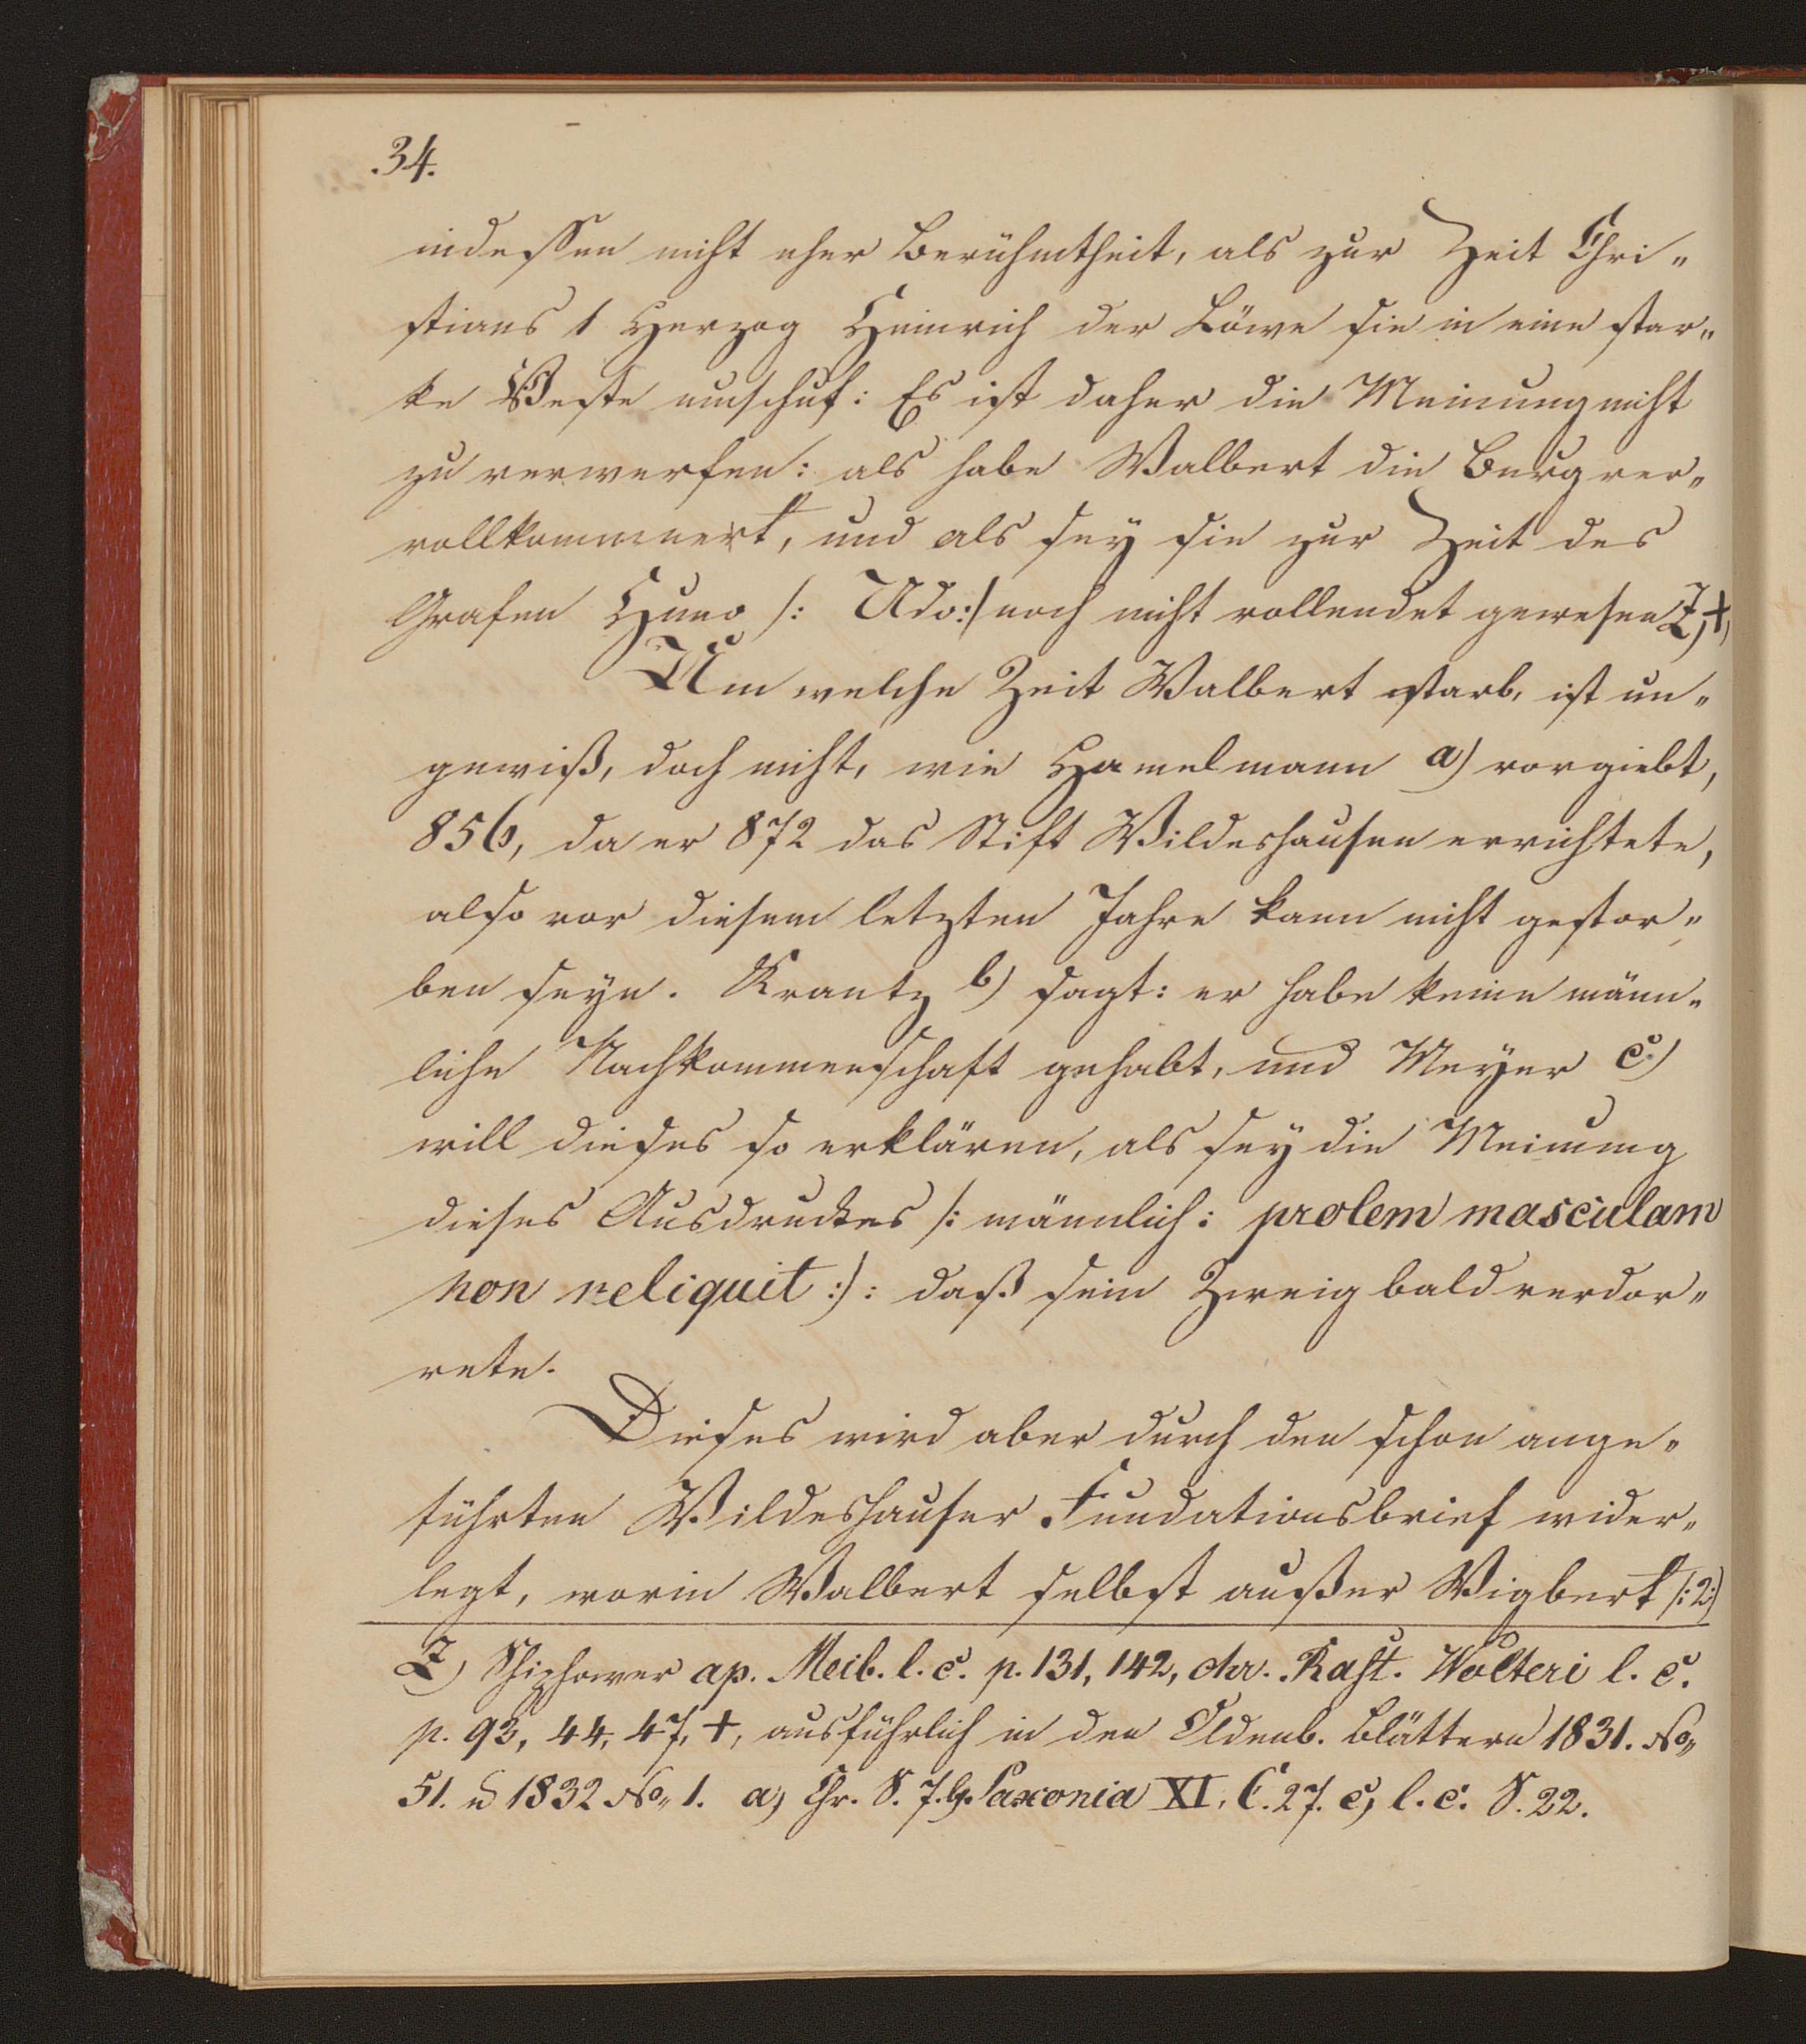 34.
indessen nicht eher Berühmtheit, als zur Zeit Chri„
stians 1 Herzog Heinrich der Löwe sie in eine star„
ke Veste umschuf: Es ist daher die Meinung nicht
zu verwerfen: als habe Walbert die Burg ver„
vollkommnert, und als sey sie zur Zeit des
Grafen Huno /: Udo:/ noch nicht vollendet gewesen Z) +,
Um welche Zeit Walbert starb, ist un„
gewiß, doch nicht, wie Hamelmann a) vorgiebt,
856, da er 872 das Stift Wildeshausen errichtete,
also vor diesem letzten Jahre kann nicht gestor„
ben seyn. Krantz b) sagt: er habe keine männ„
liche Nachkommenschaft gehabt, und Meyer c)
will dieses so erklären, als sey die Meinung
dieses Ausdruckes /: männlich: prolem masculam
non reliquit :/: daß sein Zweig bald verdor„
rete.
Dieses wird aber durch den schon ange„
führten Wildeshauser Fundationsbrief wider„
legt, worin Walbert selbst außer Wigbert /:2:/
Z) Schiphower ap. Meib. l. c. p. 131, 142, chr. Rast. Wolteri l. c.
p. 93, 44, 47, +, ausführlich in den Oldenb. Blättern 1831. No„
51. u 1832 No„ 1. a) Chr. S. 7. b. Saxonia XI, C. 27. c) l. c. S. 22.